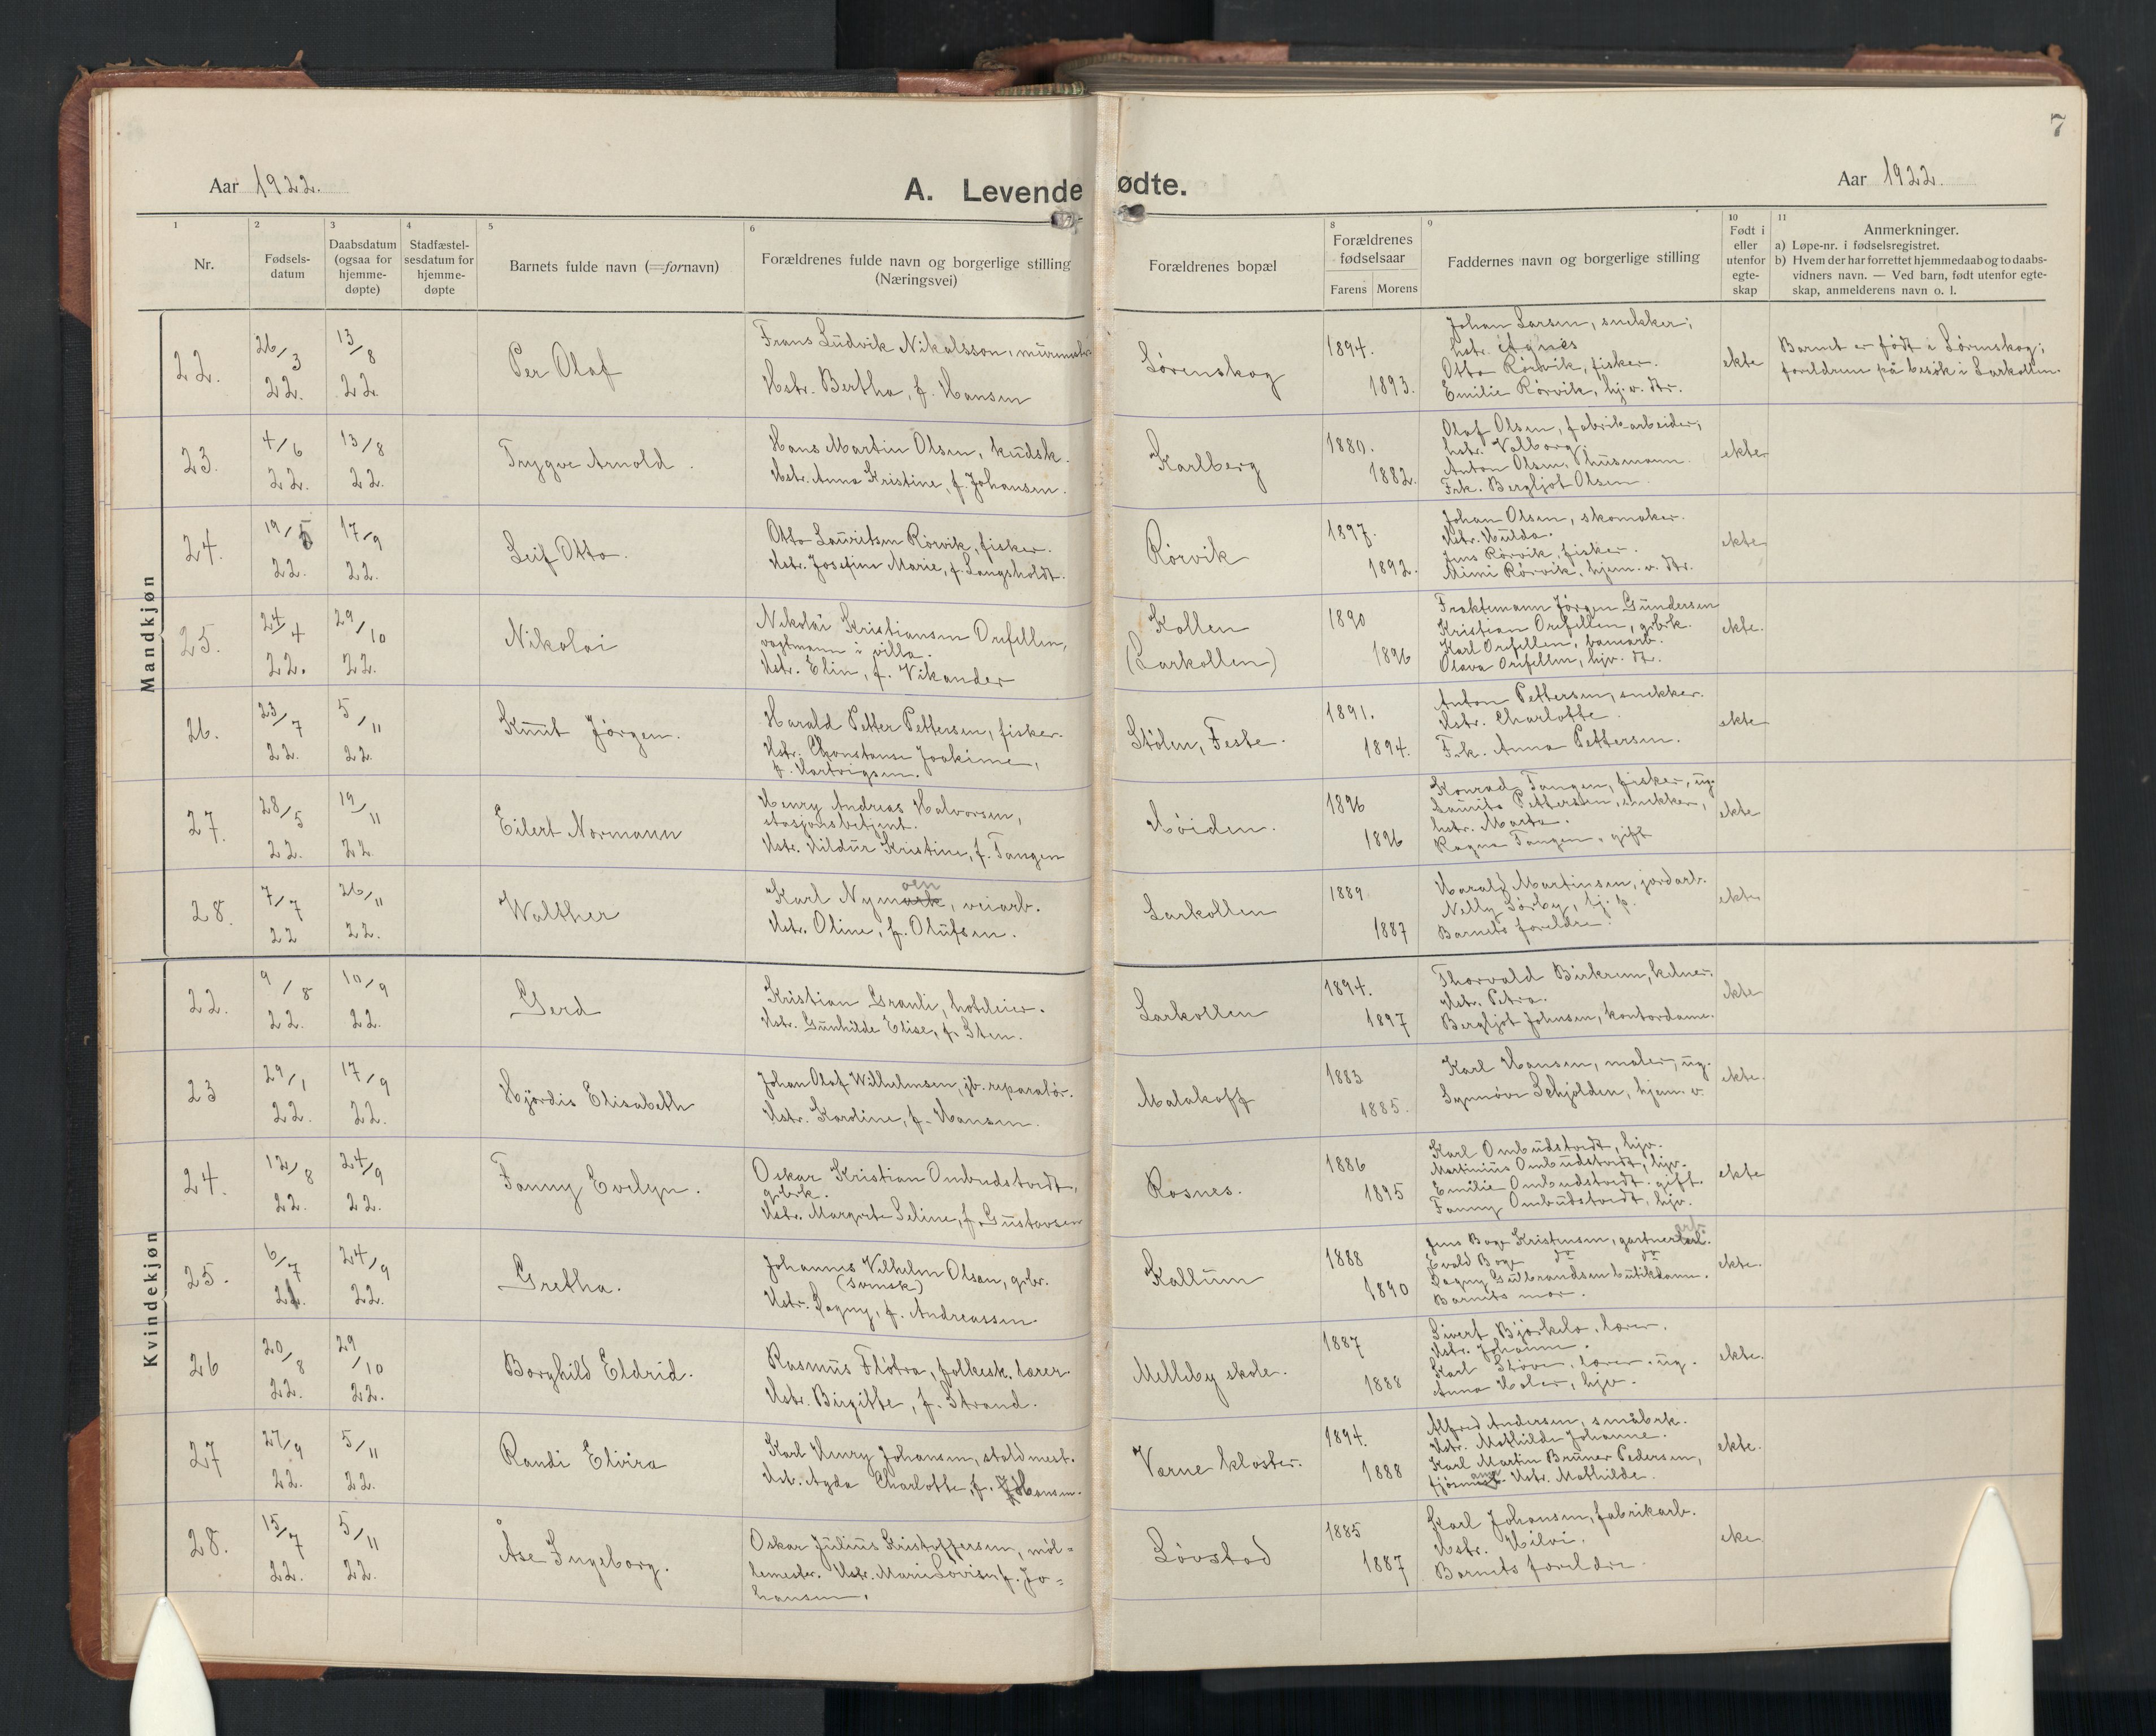 7
Aar 1922.
A. Levendefødte.
Aar 1922.
1 2 3 4 5 6 8 9 10 11
Nr.
Fødsels-
datum
Daabsdatum
(ogsaa for
hjemme-
døpte)
Stadfæstel-
sesdatum for
hjemme-
døpte
Barnets fulde navn (=fornavn)
Forældrenes fulde navn og borgerlige stilling
(Næringsvei)
Forældrenes bopæl
Forældrenes
fødselsaar
Farens Morens
Faddernes navn og borgerlige stilling
Født i
eller
utenfor
egte-
skap
Anmerkninger.
a) Løpe-nr. i fødselsregistret.
b) Hvem der har forrettet hjemmedaab og to daabs-
vidners navn. — Ved barn, født utenfor egte-
skap, anmelderens navn o. l.
Mandkjøn
22.
26/3
22.
13/8
22
Per Olaf
Frans Ludvik Nikalsson, murmester
Hstr. Bertha, f. Hansen
Sørenskog
1894.
1893.
Johan Larsen, snekker;
hstr. Agnes
Otto Rørvik, fisker.
Emilie Rørvik, hj. v. dtr.
ekte
Barnet er født i Lørenskog;
foreldrene på besøk i Larkollen.
23.
4/6
22.
13/8
22.
Trygve Arnold.
Hans Martin Olsen, kudsk.
Hstr. Anna Kristine, f. Johansen.
Karlberg
1880.
1882.
Olaf Olsen, fabrikarbeider;
hstr. Valborg.
Anton Olsen, husmann.
Frk. Bergljot Olsen
ekte
24.
19/5
22.
17/9
22.
Leif Otto.
Otto Lauritsen Rørvik, fisker.
Hstr. Josefine Marie, f. Langsholdt.
Rørvik
1897.
1892.
Johan Olsen, skomaker.
Hstr. Hulda.
Jens Rørvik, fisker.
Mimi Rørvik, hjem. v. dtr.
ekte
25.
24/4
22.
29/10
22.
Nikolai
Nikolai Kristiansen Orefellen,
vagtmann i villa.
Hstr. Elin, f. Vikander
Kollen
(Larkollen)
1890
1896
Fraktemann Jørgen Gundersen
Kristian Orefellen, grbrk.
Karl Orefellen, banearb.
Olava Orefellen, hjv. dtr.
ekte.
26.
23/7
22.
5/11
22.
Knut Jørgen.
Harald Petter Pettersen, fisker.
Hstr. Chonstanse Joakime,
f. Hartvigsen.
Støten, Feste.
1891.
1894.
Anton Pettersen, snekker.
Hstr. Charlotte.
Frk. Anna Pettersen.
ekte
27.
28/5
22.
19/11
22
Eilert Normann
Henry Andreas Halvorsen,
stasjonsbetjent.
Hstr. Hildur Kristine, f. Tangen
Høiden.
1896
1896
Konrad Tangen, fisker, ug.
Laurits Pettersen, snekker,
hstr. Marta.
Ragna Tangen, gift
ekte
28.
7/7
22
26/11
22.
Walther
oen
Karl Nymark, veiarb.
Hstr. Oline, f. Olufsen.
Larkollen
1889
1887
Harald Martinsen, jordarb.
Nelly Sørby, hj. p.
Barnets foreldre.
ekte
Kvindekjøn
22.
9/8
22.
10/9
22.
Gerd
Kristian Granli, hoteleier.
Hstr. Gunhilde Elise, f. Sten.
Larkollen
1894.
1897
Thorvald Birkrem, kelner.
Hstr. Petra.
Bergljot Johnsen, kontordame.
ekte
23
29/1
22.
17/9
22.
Hjørdis Elisabeth
Johan Olaf Wilhelmsen, jb. reparatør.
Hstr. Karoline, f. Hansen.
Malakoff
1883
1885.
Karl Hansen, maler, ug.
Synnøve Schjolden, hjem. v.
ekte.
24.
12/8
22.
24/9
22.
Fanny Evelyn.
Oskar Kristian Ombudstvedt,
grbrk.
Hstr. Margrete Seline, f. Gustavsen
Rosnes.
1886
1895
Karl Ombudstvedt, hjv.
Martinius Ombudstvedt, hjv.
Emilie Ombudstvedt. gift.
Fanny Ombudstvedt, hjv.
ekte
25.
6/7
24/9
22.
Gretha.
Johannes Vilhelm Olsan, grbr.
(svensk)
Hstr. Dagny, f. Andreassen.
Kallum
1888
1890
Jens Boge Kristensen, gartner
Evald Boge do do
Dagny Gulbrandsen butikdame.
Barnets mor.
ekte.
26
20/8
22.
29/10
22.
Borghild Eldrid.
Rasmus Fløtra, folkesk. lærer
Hstr. Birgitte, f. Strand.
Melleby skole.
1887
1888
Sivert Bjørkelo, lærer.
Hstr. Johanne.
Karl Støve, lærer. ug.
Anna Holer, hjv.
ekte.
27
27/9
22.
5/11
22.
Randi Elvira
Karl Henry Johansen, staldmest.
Hst. Agda Charlotte, f. Hansen.
Værne kloster.
1894.
1888
Alfred Andersen, småbrk.
Hstr. Mathilde Johanne.
Karl Martin Bruner Pedersen,
Hstr. Mathilde.
ekte.
28.
15/7
22.
5/11
22.
Åse Ingeborg.
Oskar Julius Kristoffersen, møl=
lemester. Hstr. Marie Lovise f. Jo=
hansen.
Løvstad
1885
1887
Karl Johansen, fabrikarb.
Hstr. Hilvi.
Barnets foreldre.
eke